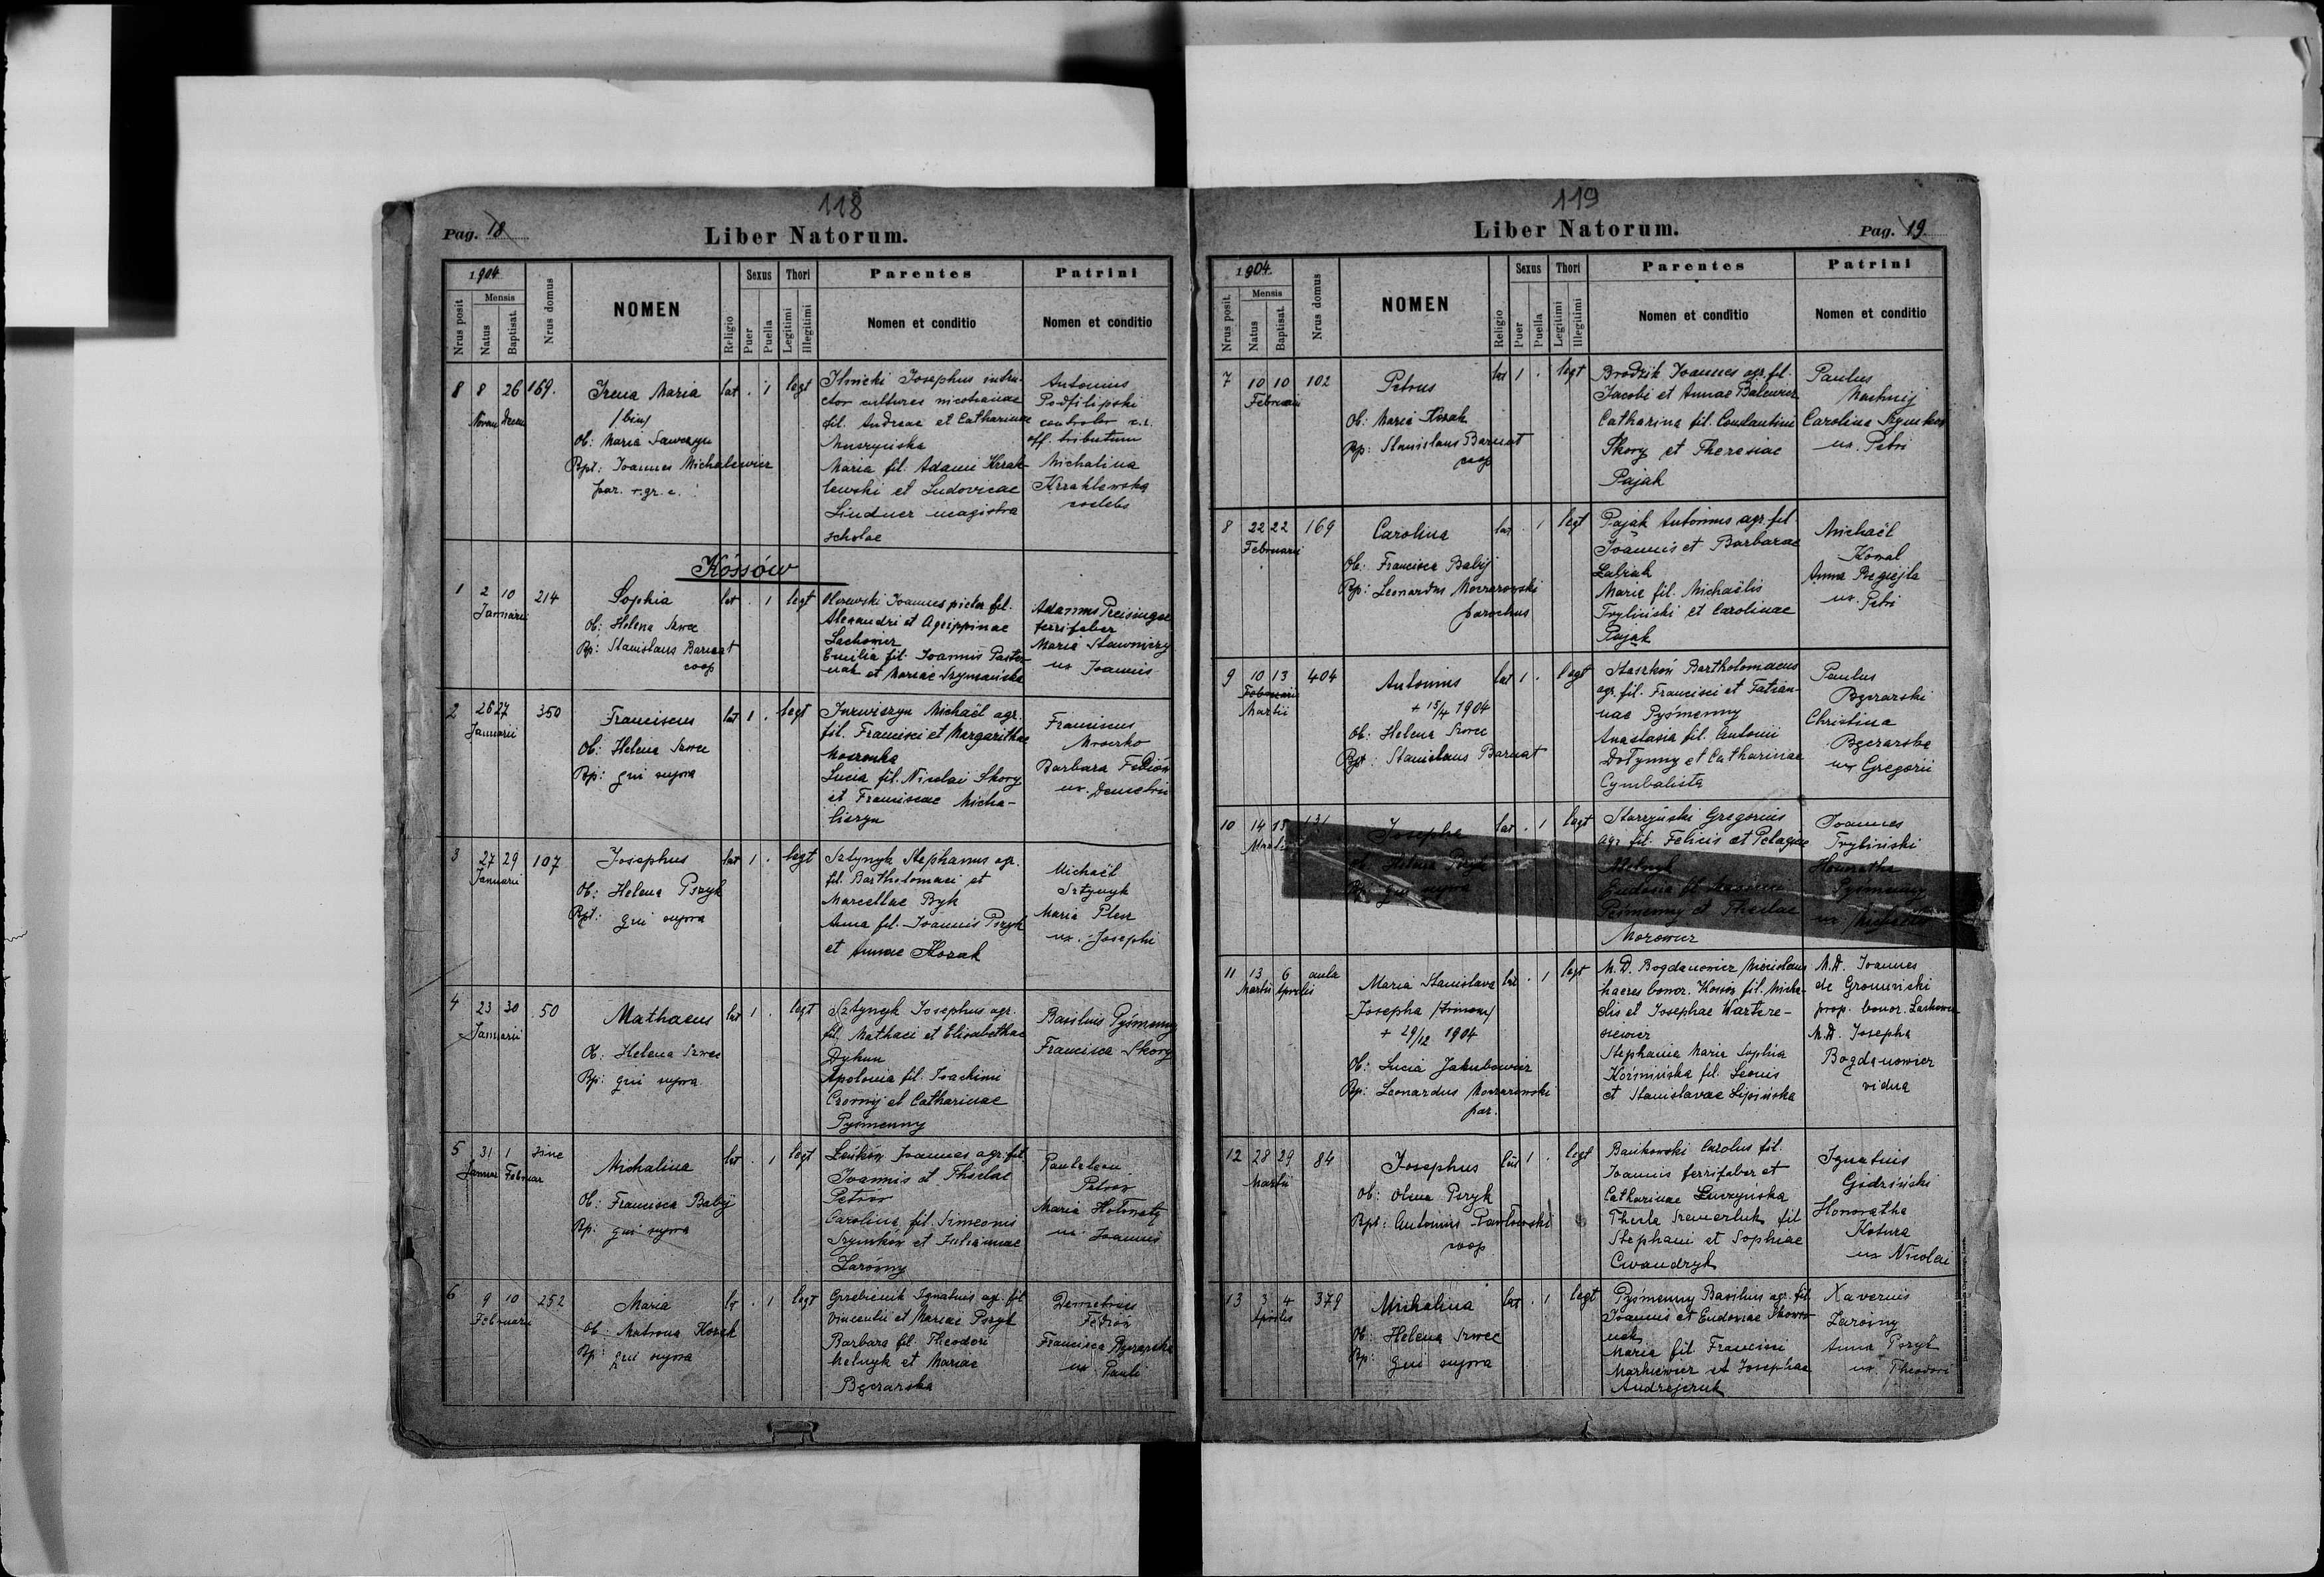 118
Pag. 18
Liber Natorum.
1904
Nrus posit
Mensis
Natus
Baptisat.
Nrus domus
NOMEN
Religio
Sexus
Puer
Puella
Thori
Legitimi
Illegitimi
Parentes
Nomen et conditio
Patrini
Nomen et conditio
8 8 26 169.
Irena Maria
/bin/
Ob: Maria Sawczyn
Bpt: Joannes Michalewicz
par. r. gr. c.
lat . 1 legt
Ilnicki Josephus instru-
ctor culturae nicotianae
fil. Andreae et Catharinae
Muszyńska
Maria fil. Adami Krzak-
lewski et Ludovicae
Lindner magistra
scholae
Antonius
Podfilipski
controlor c.r.
off. tributum
Michalina
Krzaklewska
coelebs
Kossów
1 2 10 214
Januarii
Sophia
Ob: Helena Szwec
Bp: Stanislaus Barnat
coop
lat . 1 legt
Joannes pictor fil.
Alexandri et Agrippinae
Lachowicz
Emilia fil. Joannis Paster-
nak et Mariae Szymańska
Adamus Preisinger
ferrifaber
Maria Sławniczy
ux Joannis
2 26 27 350
Januarii
Franciscus
Ob: Helena Szwec
Bp: qui supra
lat 1 . legt
Michaël agr.
fil. Francisci et Margarithae
Moczonka
Lucia fil. Nicolai Skory
et Franciscae Micha-
liszyn
Franciscus
Mroczko
Barbara Fedión
ux. Demetrii
3 27 29 107
Januarii
Josephus
Ob: Helena Pszyk
Bpt: qui supra
lat 1 . legt
Sztynyk Stephanus agr.
fil. Bartholomaei et
Marcellae Byk
Anna fil. Joannis Pszyk
et Annae Kozak
Michaël
Sztynyk
Maria Plesz
ux. Josephi
4 23 30 50
Januarii
Mathaeus
Ob: Helena Szwec
Bp: qui supra
lat 1 . legt
Sztynyk Josephus agr.
fil. Mathaei et Elisabethae
Dykun
Apolonia fil. Joachimi
Czornij et Catharinae
Pyśmenny
Basilius Pyśmenny
Francisca Skory
5 31 1 sine
Januar Februar
Michalina
Ob: Francisca Babij
Bp: qui supra
lat . 1 legt
Joannes agr. fil.
Joannis et Theclae
Petrów
Carolina fil. Simeonis
Szymków et Julianнae
Zarówny
Pantaleon
Petrów
Maria Hołowaty
ux Joannis
6 9 10 252
Februarii
Maria
Ob: Matrona Kozak
Bp: qui supra
lat . 1 legt
Grzebienik Ignatius agr. fil
Vincentii et Mariae Pszyk
Barbara fil. Theodori
Melnyk et Mariae
Bęczarska
Demetrius
Fedión
Francisca Bęczarska
ux Pauli
119
Liber Natorum.
Pag. 19
1904
Nrus posit.
Mensis
Natus
Baptisat.
Nrus domus
NOMEN
Religio
Sexus
Puer
Puella
Thori
Legitimi
Illegitimi
Parentes
Nomen et conditio
Patrini
Nomen et conditio
7 10 10 102
Februarii
Petrus
Ob: Maria Kozak
Bp: Stanislaus Barnat
coop
lat 1 . legt
Brodzik Joannes agr. fil.
Jacobi et Annae Balewicz
Catharina fil. Constantini
Skory et Theresiae
Pająk
Paulus
Machnij
Carolina Szymków
ux. Petri
8 22 22 169
Februarii
Carolina
Ob: Francisca Babij
Bp: Leonardus Moczarowski
parochus
lat . 1 legt
Pająk Antonius agr. fil.
Joannis et Barbarae
Łabiak
Maria fil. Michaëlis
Trybiński et Carolinae
Pająk
Michaël
Kowal
Anna
ux. Petri
9 10 13 404
Februarii
Martii
Antonius
+ 15/4 1904
Ob: Helena Szwec
Bpt: Stanislaus Barnat
lat 1 . legt
Staszków Bartholomaeus
agr. fil. Francisci et Tatian-
nae Pyśmenny
Anastasia fil. Antonii
Dołynny et Catharinae
Cymbalista
Paulus
Bęczarski
Christina
Bęczarska
ux Gregorii
10 14 15 131
Martii
Josepha
Ob: Helena Pszyk
Bp: qui supra
lat . 1 legt
Starzyński Gregorius
agr fil. Felicis et Pelagiae
Melnyk
Eudoxia fil Maximi
Pyśmenny et Theclae
Morowicz
Joannes
Trybiński
Honoratha
Pyśmenny
ux Michaelis
11 13 6 aula
Martii Aprilis
Maria Stanislava
Josepha /trinom/
+ 29/12 1904
Ob: Lucia Jakubowicz
Bp: Leonardus Moczarowski
par.
lat . 1 legt
M. D. Bogdanowicz Miecislaus
haeres bonor. Kossów fil. Micha-
ëlis et Josephae Wartere-
siewicz
Stephania Maria Sophia
Koźmińska fil. Leonis
et Stanislavae Lipińska
M. D. Joannes
de Gromnicki
prop. bonor. Laskowce
M. D. Josepha
Bogdanowicz
vidua
12 28 29 84
Martii
Josephus
Ob: Olena Pszyk
Bpt: Antonius Pawłowski
coop
lat 1 . legt
Bańkowski Carolus fil.
Joannis ferrifaber et
Catharinae Luczyńska
Thecla Szewczuk fil
Stephani et Sophiae
Cwandryk
Ignatius
Gidziński
Honoratha
Kotura
ux Nicolai
13 3 4 379
Aprilis
Michalina
Ob: Helena Szwec
Bp: qui supra
lat . 1 legt
Pyśmenny Basilius agr. fil
Joannis et Eudoxiae Skowro-
nek
Maria fil. Francisci
Markiewicz et Josephae
Andrejczuk
Xaverius
Zarówny
Anna Pszyk
ux. Theodori